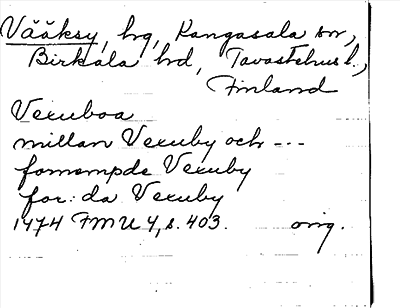 Vääksy, hg, Kangasala sn,
Birkala hd, Tavastehus l.,
Finland
Vexuboa
millan Vexuby och ---
fornempde Vexuby
for:da Vexuby
1474 FMU 4, s. 403. orig.